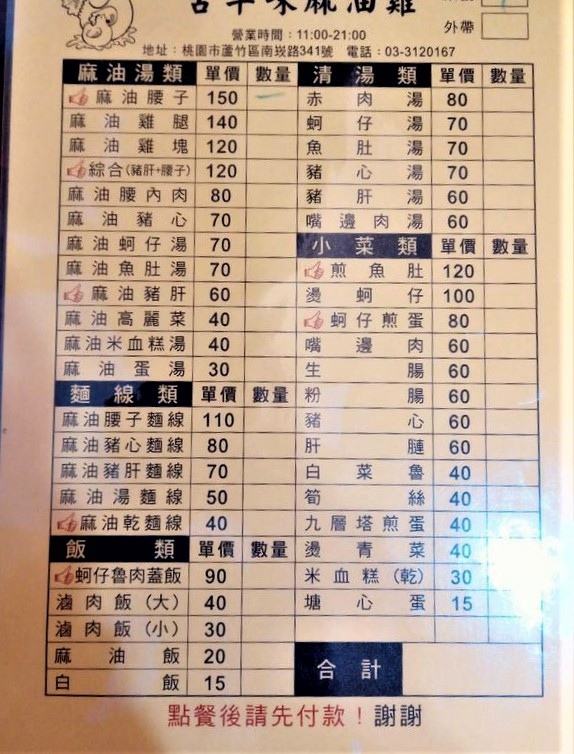 古早味麻油雞
外帶
營業時間：11:00-21:00
地址：桃園市蘆竹區南崁路341號 電話：03-3120167
麻油湯類 單價 數量
麻油腰子 150
麻油雞腿 140
麻油雞塊 120
綜合(豬肝+腰子) 120
麻油腰內肉 80
麻油豬心 70
麻油蚵仔湯 70
麻油魚肚湯 70
麻油豬肝 60
麻油高麗菜 40
麻油米血糕湯 40
麻油蛋湯 30
麵線類 單價 數量
麻油腰子麵線 110
麻油豬心麵線 80
麻油豬肝麵線 70
麻油湯麵線 50
麻油乾麵線 40
飯類 單價 數量
蚵仔魯肉蓋飯 90
滷肉飯（大） 40
滷肉飯（小） 30
麻油飯 20
白飯 15
清湯類 單價 數量
赤肉湯 80
蚵仔湯 70
魚肚湯 70
豬心湯 70
豬肝湯 60
嘴邊肉湯 60
小菜類 單價 數量
煎魚肚 120
燙蚵仔 100
蚵仔煎蛋 80
嘴邊肉 60
生腸 60
粉腸 60
豬心 60
肝腱 60
白菜魯 40
筍絲 40
九層塔煎蛋 40
燙青菜 40
米血糕（乾） 30
塘心蛋 15
合計
點餐後請先付款！謝謝